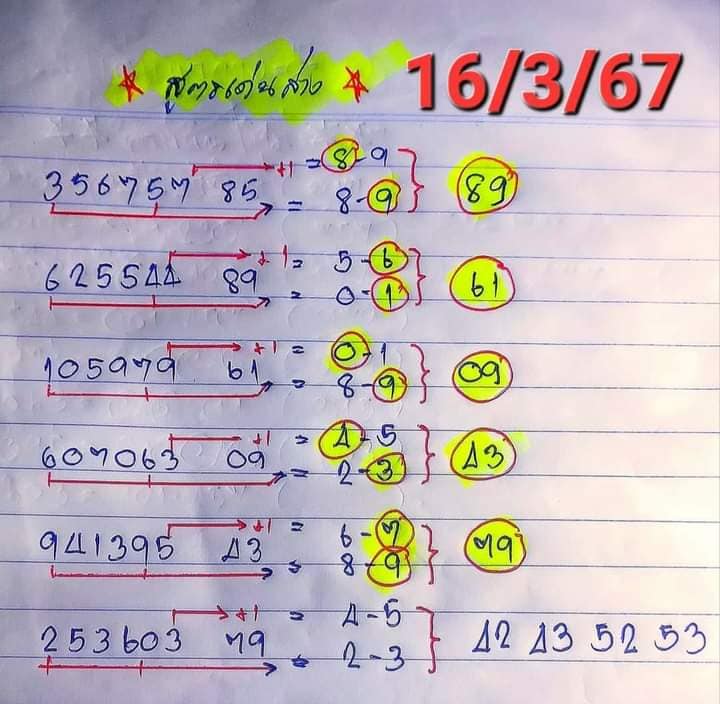 สูตรเด่นล่าง 16/3/67
356757 85 +1 = 8-9
= 8-9 89
625544 89 +1 = 5-6
= 0-1 61
105979 61 +1 = 0-1
= 8-9 09
607063 09 +1 = 4-5
= 2-3 43
941395 43 +1 = 6-7
= 8-9 79
253603 79 +1 = 4-5
= 2-3 42 43 52 53